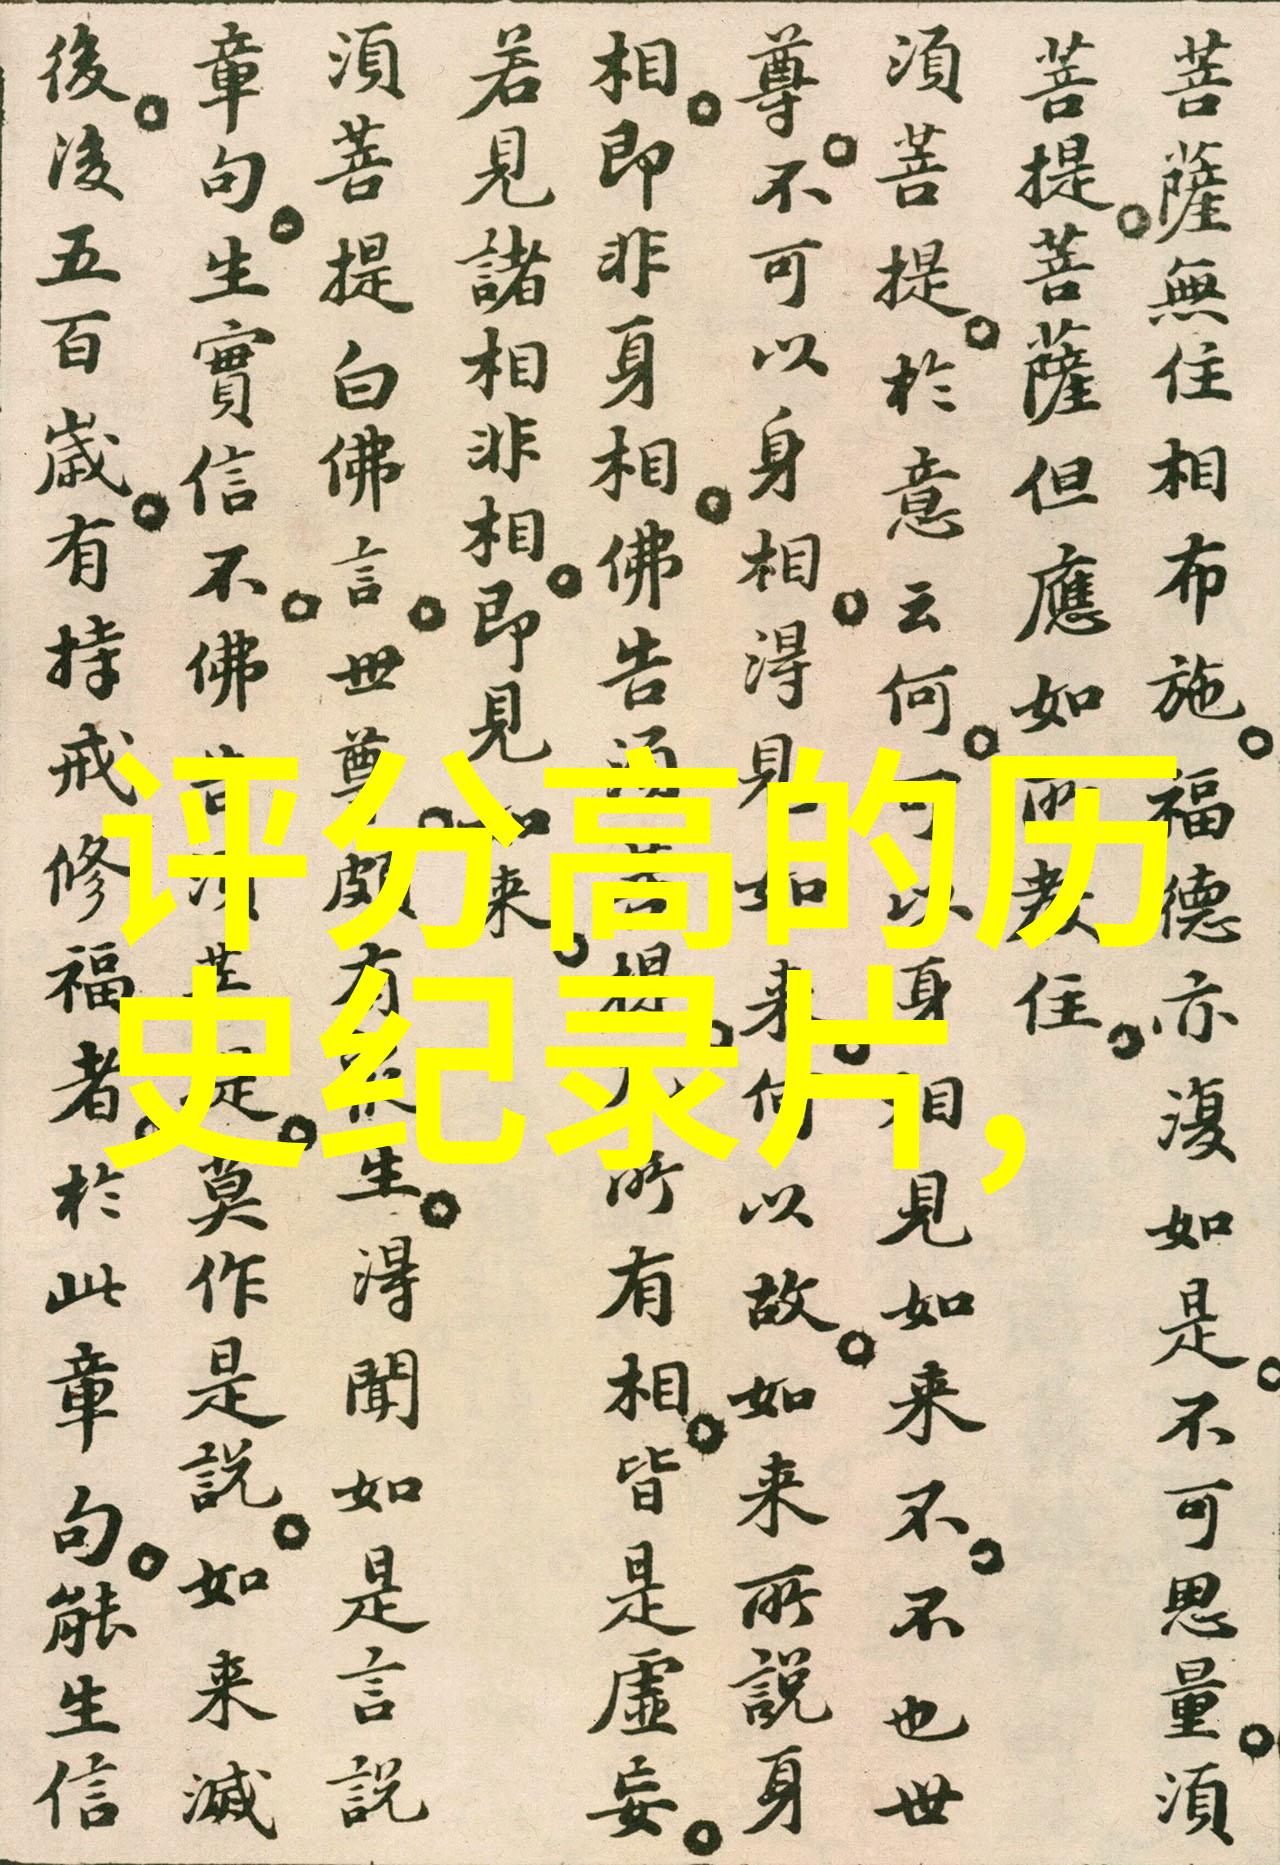 菩薩無住相布施福德亦復如是不可思量須
菩提菩薩但應如所教住
須菩提於意云何可以身相見如来不不也世
尊不可以身相得見如来何以故如来所說身
相即非身相佛告須菩提凡所有相皆是虛妄
若見諸相非相即見如来
須菩提白佛言世尊頗有衆生得聞如是言說
章句生實信不佛告須菩提莫作是說如来滅
後後五百歲有持戒修福者於此章句能生信
评分高的历
史纪录片,